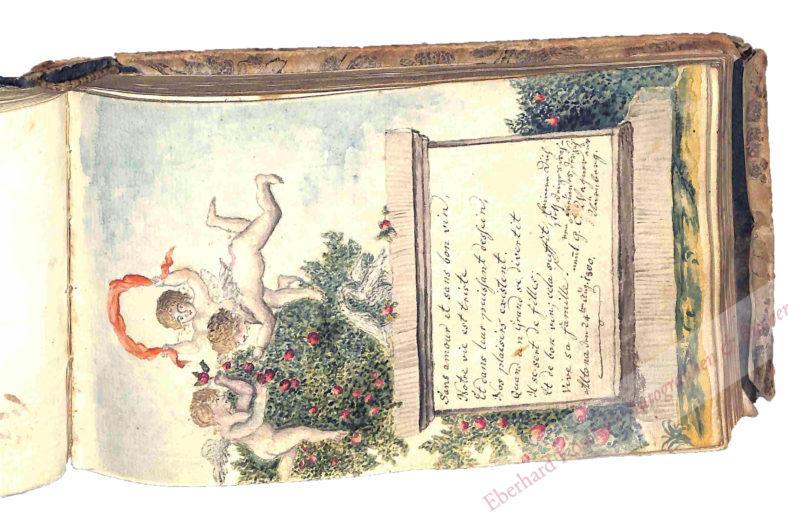 Sans amour et sans bon vin,
Notre vie est triste
Et dans leur puissant dessein,
Nos plaisirs existent.
Quand un Grand se divertit
Il se sert de filles;
Et de bon vin, cela suffit,
Vive sa famille.
Altona den 24ten Aug 1800.
Wagner aus
Nürnberg.
Eberhard